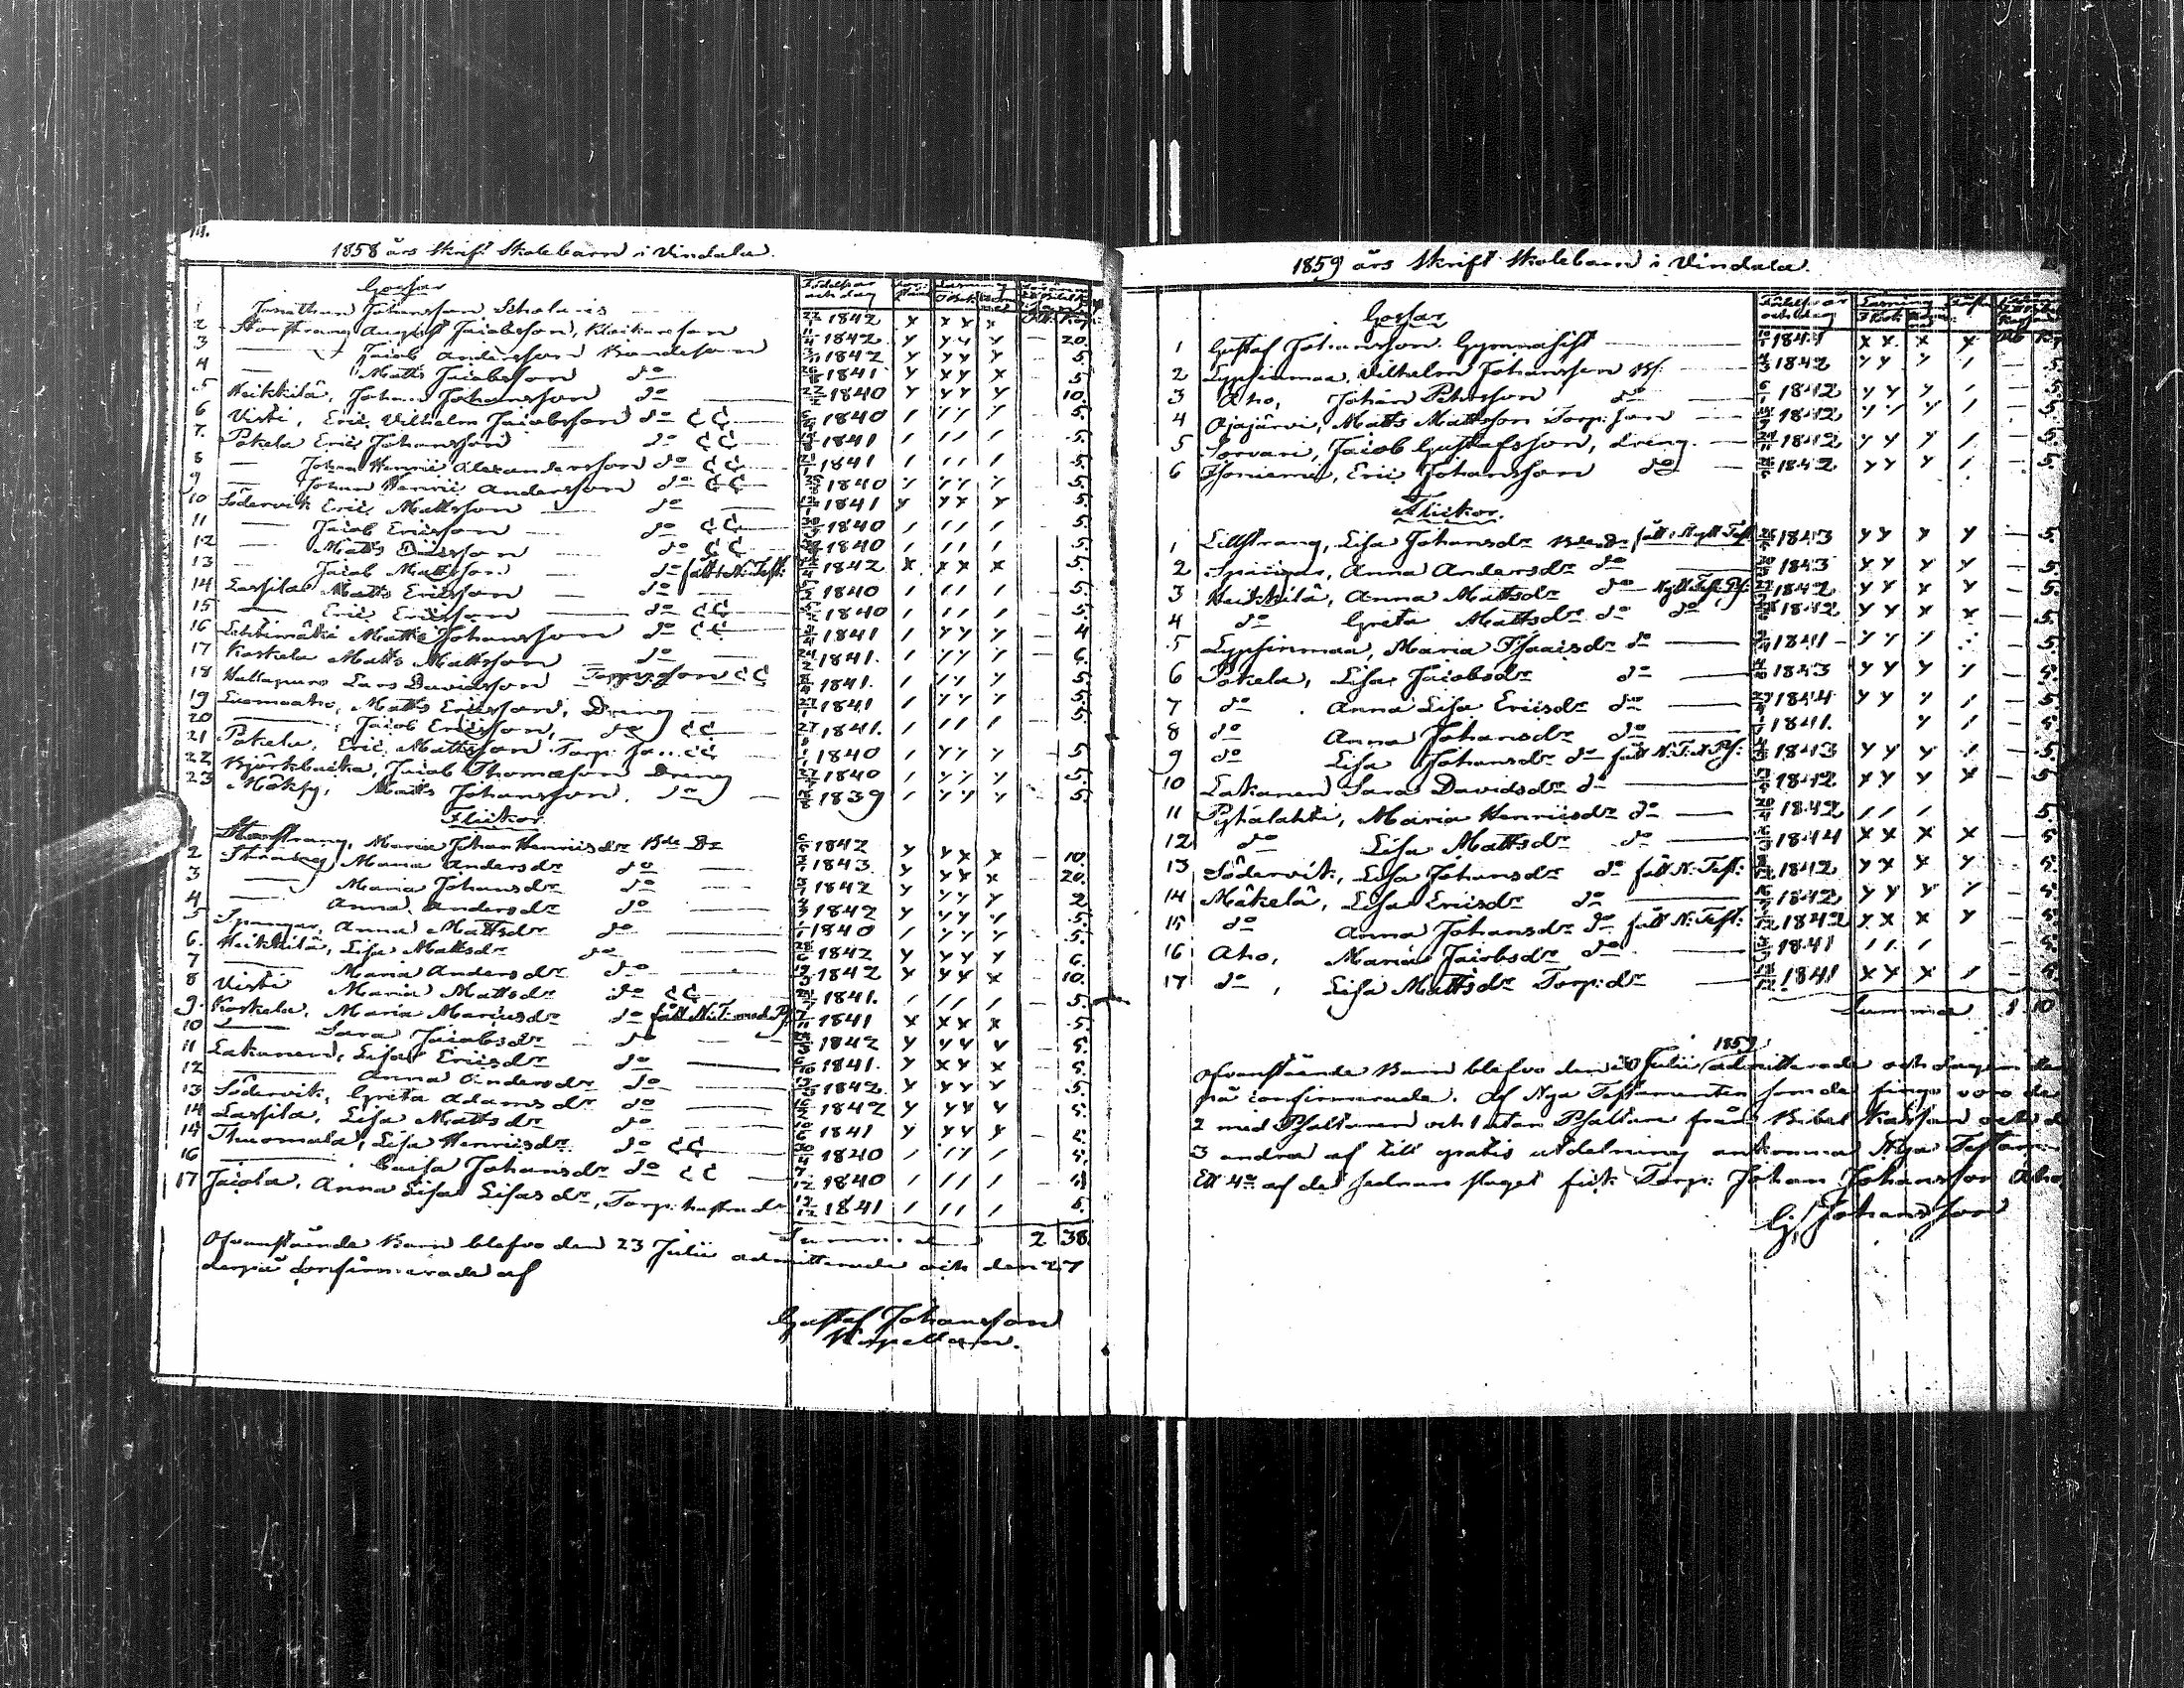 1858 års Skrift Skolebarn i Vindala.
Gossar
Födelseår och dag
1 Jonathan Johansson, Scholaris 1842 x x x x
2 Storstrang August Jacobsson, Klockareson 1842 y y y y — 20.
3 — Jacob Andersson Bondeson 1842 y y y y 5
4 — Matts Jacobsson do 1841 y x y x 5.
5 Heikkilä, Johan Johansson do 1840 y y y y 10.
6 Visti, Eric Vilhelm Jacobsson do 1840 / / / / 5.
7. Pokela Eric Johansson do 1841 / / / / 5.
8 — Johan Henric Alexandersson do 1841 / / / / 5.
9 — Johan Henric Andersson do 1840 5.
10 Södervik Eric Mattsson do 1841 y y y y 5.
11 — Jacob Ericsson do 1840 / / / / 5.
12 — Matts Ericsson do 1840 / / / / 5.
13 — Jacob Mattsson do fått N: Test: 1842 x x x x 5.
14 Lassila Matts Ericsson do 1840 / / / / 5.
15 — Eric Ericsson do 1840 / / / / 5.
16 Lehtimäki Matts Johansson do 1841 / y y y — 4
17 Koskela Matts Mattsson do 1841. / y y / — 6.
18 Hallapuro Lars Davidsson Torp: son 1841. / y y y 5
19 Luomaaho, Matts Ericsson, Dreng 1841 / y y y 5
20 — Jacob Ericsson, do 1841. / / / / 5
21 Pokela, Eric Mattsson Torp: son 1840 / y y y — 5
22 Björkbacka, Jacob Thomasson Dreng 1840 / y y y 5.
23 Mäkky, Matts Johansson, do 1839 / y y y 5.
Flickor
1 Storstrang, Maria Johan Henricsdr Bde Dr 1842 y y x x — 10.
2 Maria Andersdr do 1843. y y x x — 20.
3 — Maria Johansdr do 1842 y y y y 2
4 — Anna Andersdr do 1842 y y y y 5.
5 Spangar, Anna Mattsdr do 1840 / y y y 5.
6. Heikkilä, Lisa Mattsdr do 1842 y y y y 6.
7 — Maria Andersdr do 1842 y y y x 10.
8 Visti Maria Mattsdr do 1841. / / / / 5.
9. Koskela, Maria Mariasdr do fått N: T: med Ps: 1841 x x x x 5.
10 — Sara Jacobsdr do 1842 y y y y 5.
11 Lakanen, Lisa Ericsdr do 1841. y x y x 5.
12 — Anna Andersdr do 1842. y y y y 5.
13 Södervik, Greta Adamsdr do 1842 y y y y 5.
14 Lassila, Lisa Mattsdr do 1841 y y y y
14 Lisa Henricsdr do 1840 / y y / 5.
16 — Caisa Johansdr do 1840 / / / /
17 Jacola, Anna Lisa Lisasdr, Torp: dr 1841 / / / / 5.
Summa 2 38.
Ofvanstående Barn blefvo den 23 Julii admitterade och den 27
derpå confirmerade af
Gustaf Johansson
Kapellan.
1859 års Skrift Skolebarn i Vindala.
Gossar
Födelseår och dag Läsning
1 Gustaf Johansson, Gymnasist 1841 x x x x
2 Lypsinmaa, Vilhelm Johansson 1842 y y y / — 5
3 Aho, Johan Pehrsson do 1842 y y y / 5.
4 Ojajärvi, Matts Mattsson Torp: son 1842 y y y / 5.
5 Sorvari, Jacob Gustafsson, dreng. 1842 y y y / 5.
6 Isoniemi, Eric Johansson do 1842 y y y / 5.
Flickor.
1 Lillstrang, Lisa Johansdr Bde Dr fått Nytt Test: 1843 y y y y — 5.
2 Spangar, Anna Andersdr do 1843 y y x y 5.
3 Heikkilä, Anna Mattsdr do Nytt Test: Ps: 1842 y y x y 5.
4 do Greta Mattsdr do do 1842 y y x x 5.
5 Lypsinmaa, Maria Isaacsdr do 1841 y y y 5.
6 Pokela, Lisa Jacobsdr do 1843 y y y y — 5.
7 do Anna Lisa Ericsdr do 1844 y y y / — 5.
8 do Anna Johansdr do 1841. y / 5
9 do Lisa Johansdr do fått N: T. o Ps: 1843 y y y / — 5.
10 Lakanen Sara Davidsdr do 1842 x y y x — 5
11 Pyhälahti, Maria Henricsdr do 1842 / / / 5.
12 do Lisa Mattsdr do 1844 x x x x — 5
13 Södervik, Lisa Johansdr do fått N: Test: 1842 y x x y 5.
14 Mäkelä, Lisa Ericsdr do 1842 y y y y — 5.
15 do Anna Johansdr do fått N: Test: 1842 y x x y — 5.
16 Aho, Maria Jacobsdr do 1841 / / / — 5.
17 do, Lisa Mattsdr Torp: dr 1841 x x x / — 5.
Summa 1 10
1859
Ofvanstående Barn blefvo den Julii admitterade och dagen der
på confirmerade. Af Nya Testamenten som de fingo voro de
2 med Psaltaren och 1 utan Psaltare från Bibel Kassan och d
3 andra af till gratis utdelning ankomna Nya Testam:
Ett 4de af det sednare slaget fick Torp: Johan Johansson Aho.
G. Johansson